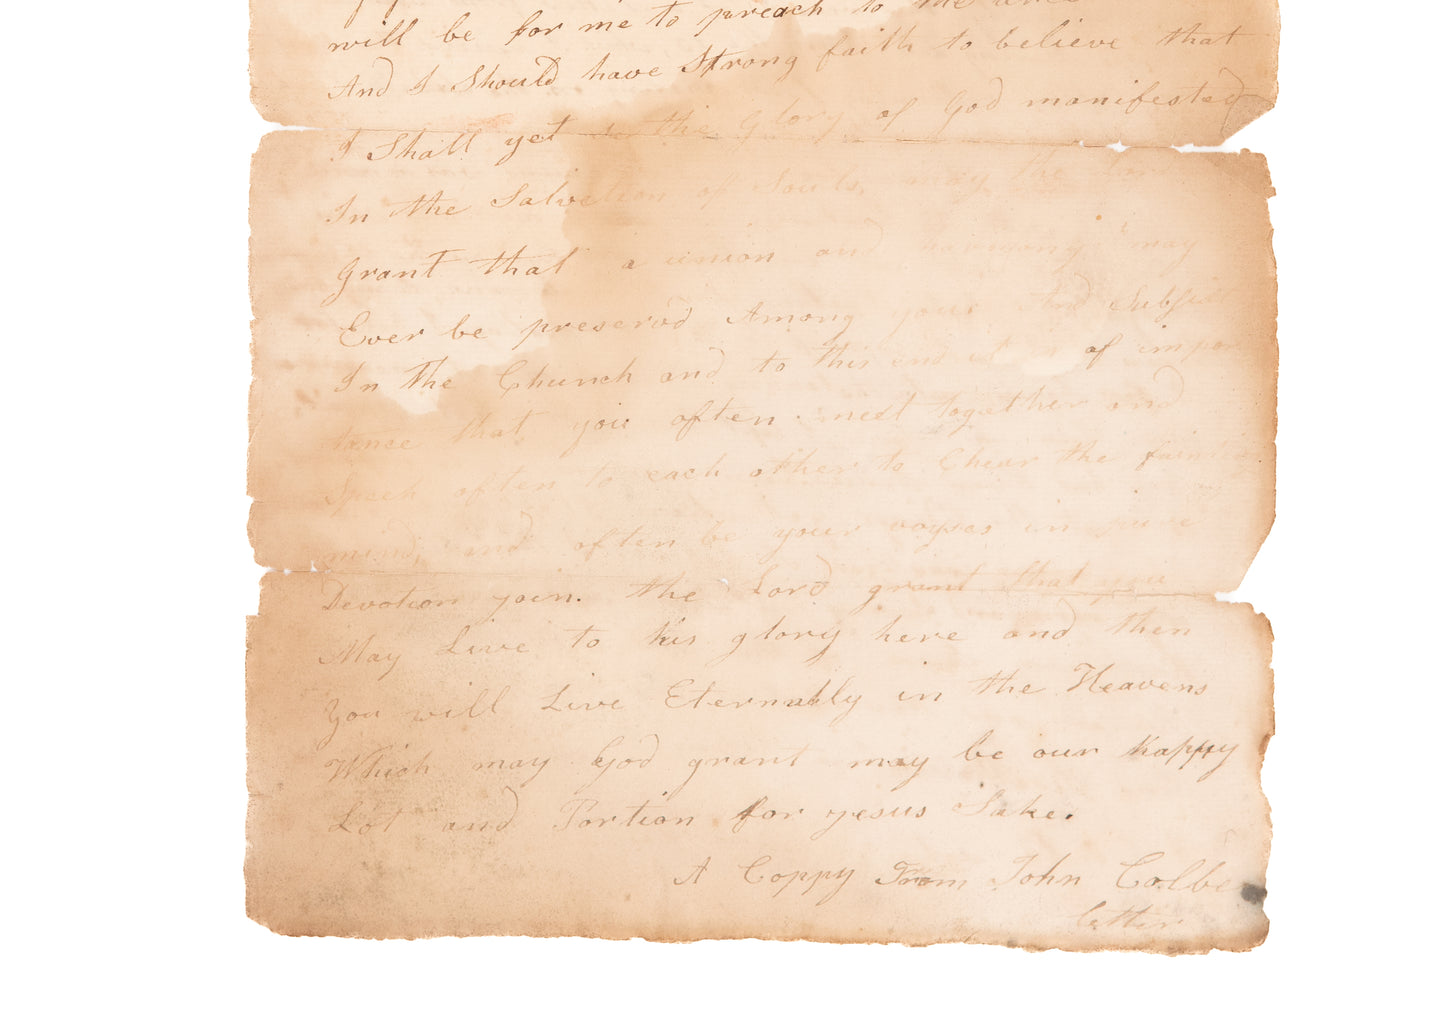 will be for me to preach to the
And I Should have Strong faith to believe that
I Shall yet see the Glory of God manifested
In the Salvation of Souls, may the Lord
grant that a union and harmony may
Ever be preserv'd Among your And Subsist
In the Church and to this end it is of impor
tance that you often meet together and
Speek often to each other to Chear the fainting
mind, and often be your voyses in pure
Devotion join. the Lord grant that you
May Live to his glory here and then
You will Live Eternally in the Heavens
Which may God grant may be our happy
Lot and Portion for jesus Sake.
A Coppy From John Colbe
letter